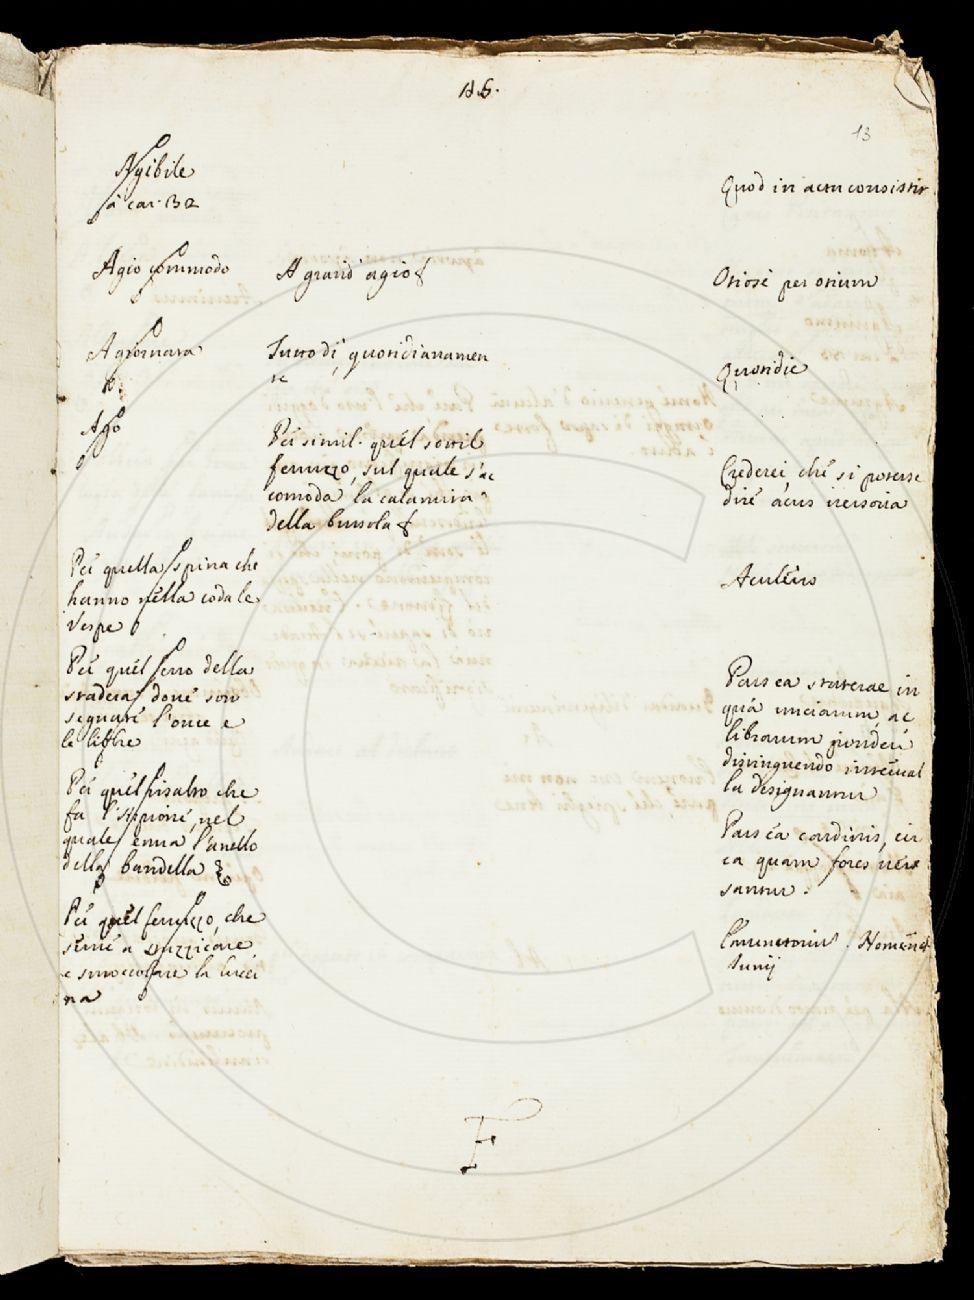 AG.
13
Agibile
à car. 132
Quod in actu consistit
Agio commodo
A grand' agio
Otiose per otium
A giornata
Tutto dì, quotidianamen
te
Quotidie
Ago
Per simil. quel sottil
ferruzzo, sul quale s'ac
comoda la calamita
della bussola
Crederei, che si potesse
dire acus versoria
Per quella spina che
hanno nella coda le
Vespe
Aculeus
Per quel ferro della
stadera dove son
segnate l'once e
le libbre
Pars ea staterae in
qua unciarum, ac
librarum pondera
distinguendo interval
la designantur
Per quel pisalto che
fa l'arpione, nel
quale entra l'anello
della bandella
Pars ea cardinis, cir
ca quam fores ver
santur.
Per quel ferruzzo, che
serve a stuzzicare,
e smoccolare la lucer
na
Nomencl.
Junij
F